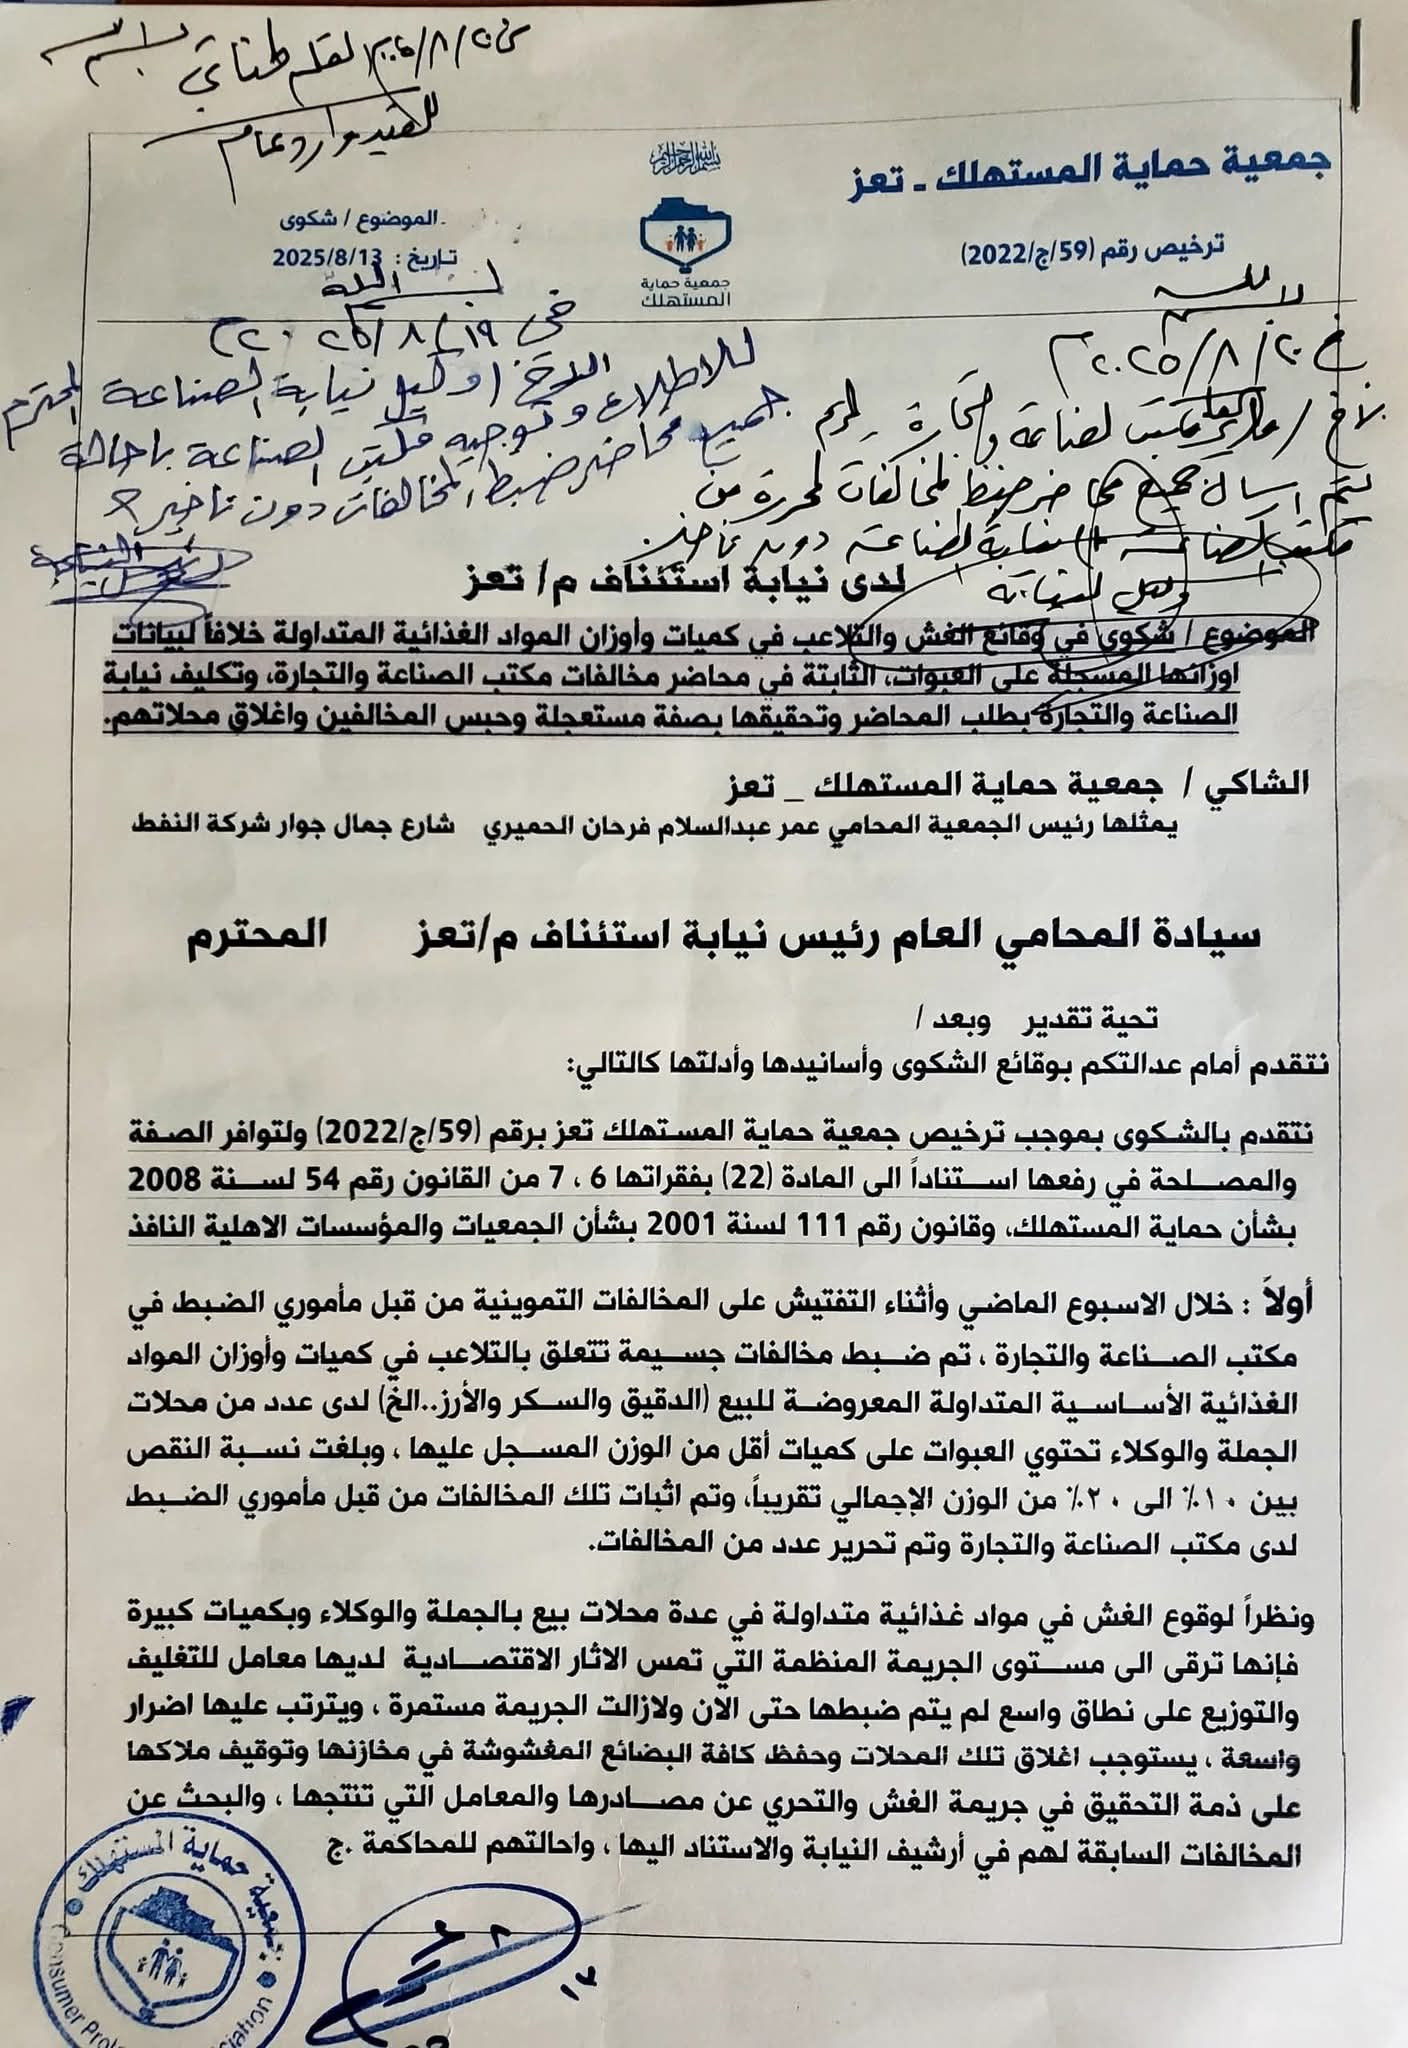 في ٢٠٢٥/٨/٢٠
القلم الجنائي
للقيد وارد عام
جمعية حماية المستهلك ـ تعز
ترخيص رقم (59/ج/2022)
بسم الله الرحمن الرحيم
جمعية حماية
المستهلك
الموضوع / شكوى
تاريخ : 2025/8/13
بسم الله
في ١٩/ ٨/ ٢٠٢٥م
الاخ / وكيل نيابة الصناعة المحترم
للاطلاع وتوجيه مكتب الصناعة باحالة
جميع محاضر ضبط المخالفات دون تاخير
٢٠٢٥/٨/٢٠م
الاخ / مدير مكتب الصناعة والتجارة
يتم ارسال جميع محاضر ضبط المخالفات المحررة من
مكتب الصناعة الى نيابة الصناعة دون تاخير.
وكيل النيابة
لدى نيابة استئناف م/ تعز
الموضوع / شكوى في وقائع الغش والتلاعب في كميات وأوزان المواد الغذائية المتداولة خلافاً لبيانات
اوزانها المسجلة على العبوات، الثابتة في محاضر مخالفات مكتب الصناعة والتجارة، وتكليف نيابة
الصناعة والتجارة بطلب المحاضر وتحقيقها بصفة مستعجلة وحبس المخالفين واغلاق محلاتهم.
الشاكي / جمعية حماية المستهلك _ تعز
يمثلها رئيس الجمعية المحامي عمر عبدالسلام فرحان الحميري شارع جمال جوار شركة النفط
سيادة المحامي العام رئيس نيابة استئناف م/تعز المحترم
تحية تقدير وبعد /
نتقدم أمام عدالتكم بوقائع الشكوى وأسانيدها وأدلتها كالتالي:
نتقدم بالشكوى بموجب ترخيص جمعية حماية المستهلك تعز برقم (59/ج/2022) ولتوافر الصفة
والمصلحة في رفعها استناداً الى المادة (22) بفقراتها 6 ، 7 من القانون رقم 54 لسنة 2008
بشأن حماية المستهلك، وقانون رقم 111 لسنة 2001 بشأن الجمعيات والمؤسسات الاهلية النافذ
أولاً : خلال الاسبوع الماضي وأثناء التفتيش على المخالفات التموينية من قبل مأموري الضبط في
مكتب الصناعة والتجارة ، تم ضبط مخالفات جسيمة تتعلق بالتلاعب في كميات وأوزان المواد
الغذائية الأساسية المتداولة المعروضة للبيع (الدقيق والسكر والأرز..الخ) لدى عدد من محلات
الجملة والوكلاء تحتوي العبوات على كميات أقل من الوزن المسجل عليها ، وبلغت نسبة النقص
بين ١٠٪ الى ٢٠٪ من الوزن الإجمالي تقريباً، وتم اثبات تلك المخالفات من قبل مأموري الضبط
لدى مكتب الصناعة والتجارة وتم تحرير عدد من المخالفات.
ونظراً لوقوع الغش في مواد غذائية متداولة في عدة محلات بيع بالجملة والوكلاء وبكميات كبيرة
فإنها ترقى الى مستوى الجريمة المنظمة التي تمس الاثار الاقتصادية لديها معامل للتغليف
والتوزيع على نطاق واسع لم يتم ضبطها حتى الان ولازالت الجريمة مستمرة ، ويترتب عليها اضرار
واسعة ، يستوجب اغلاق تلك المحلات وحفظ كافة البضائع المغشوشة في مخازنها وتوقيف ملاكها
على ذمة التحقيق في جريمة الغش والتحري عن مصادرها والمعامل التي تنتجها ، والبحث عن
المخالفات السابقة لهم في أرشيف النيابة والاستناد اليها ، واحالتهم للمحاكمة .ج
جمعية حماية المستهلك
Consumer